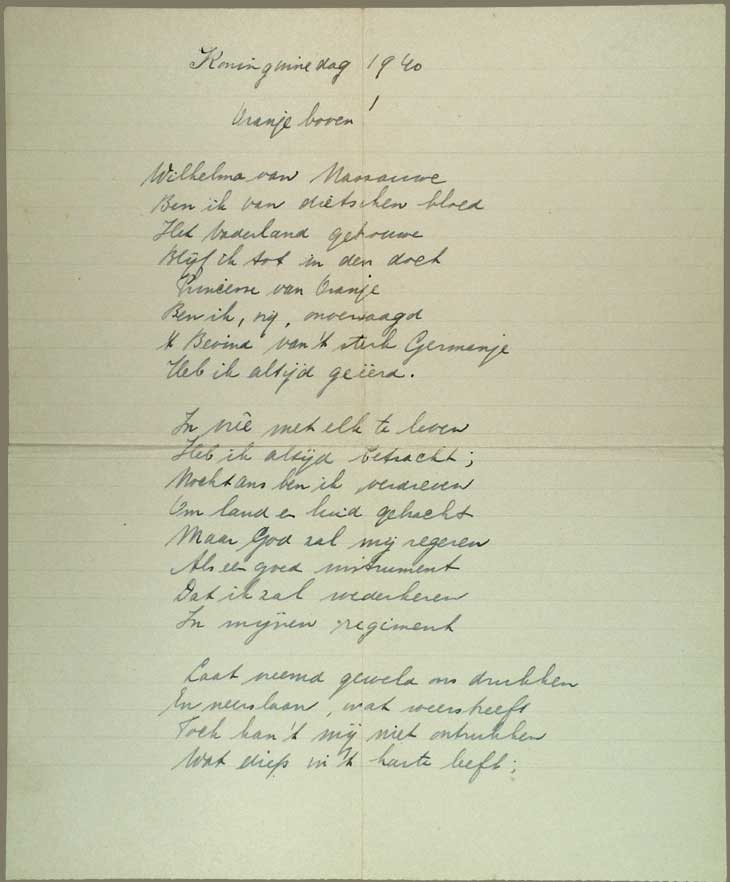 Koninginnedag 1940
Oranje boven!
Wilhelma van Nassouwe
Ben ik van dietschen bloed
Het Vaderland getrouwe
Blijf ik tot in den doet
Princesse van Oranje
Ben ik, vrij, onversaagd
't Bewind van 't sterk Germanje
Heb ik altijd geëerd.
In vrêe met elk te leven
Heb ik altijd betracht;
Nochtans ben ik verdreven
Om land e luid gebracht
Maar God zal mij regeren
Als een goed instrument
Dat ik zal wederkeren
In mijnen regiment
Laat vreemd geweld ons drukken
En neerslaan, wat weerstreeft
Toch kan 't mij niet ontrukken
Wat diep in 't harte leeft;